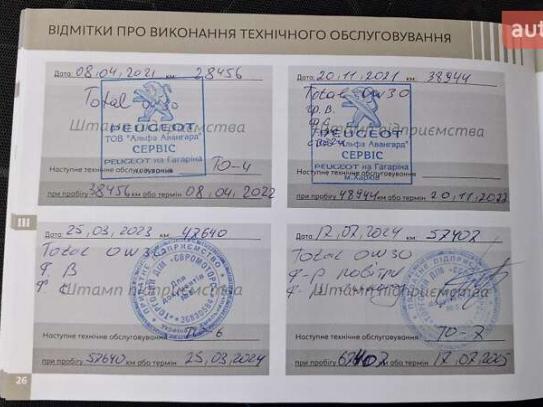 ВІДМІТКИ ПРО ВИКОНАННЯ ТЕХНІЧНОГО ОБСЛУГОВУВАННЯ
auto
Дата: 08.04.2021 км: 28456
Total
PEUGEOT
Штамп підприємства
ТОВ "Альфа Авангард"
СЕРВІС
PEUGEOT на Гагаріна
Наступне технічне обслуговування ТО-4
при пробігу 38456 км або термін 08.04.2022
Дата: 20.11.2021 км: 38944
Total 0W30
PEUGEOT
Штамп підприємства
"Альфа Авангард"
СЕРВІС
PEUGEOT на Гагаріна
м.Харків
Наступне технічне обслуговування
при пробігу 48944 км або термін 20.11.2022
III
Дата: 25.03.2023 км: 47640
Total 0W30
Ф. В
Ф
Для документів
Штамп підприємства
Наступне технічне обслуговування ТО-6
при пробігу 57640 км або термін 25.03.2024
Дата: 17.07.2024 км: 57407
Total 0W30
Ф-р повітр
Штамп підприємства
Наступне технічне обслуговування ТО-7
при пробігу 67407 км або термін 17.07.2025
26